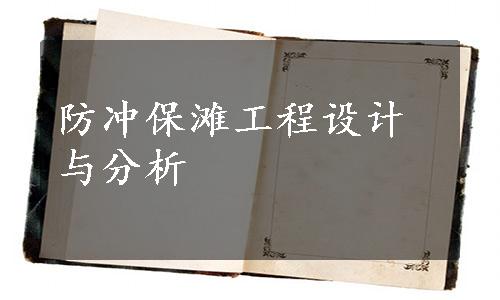 防冲保滩工程设计
与分析